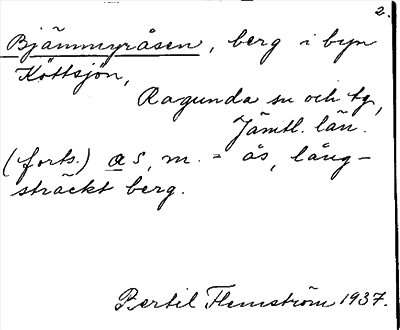 2.
Bjämmyråsen, berg i byn
Köttsjön,
Ragunda sn och tg,
Jämtl. län.
(forts.) ɑs, m. = ås, lång-
sträckt berg.
Bertil Flemström 1937.